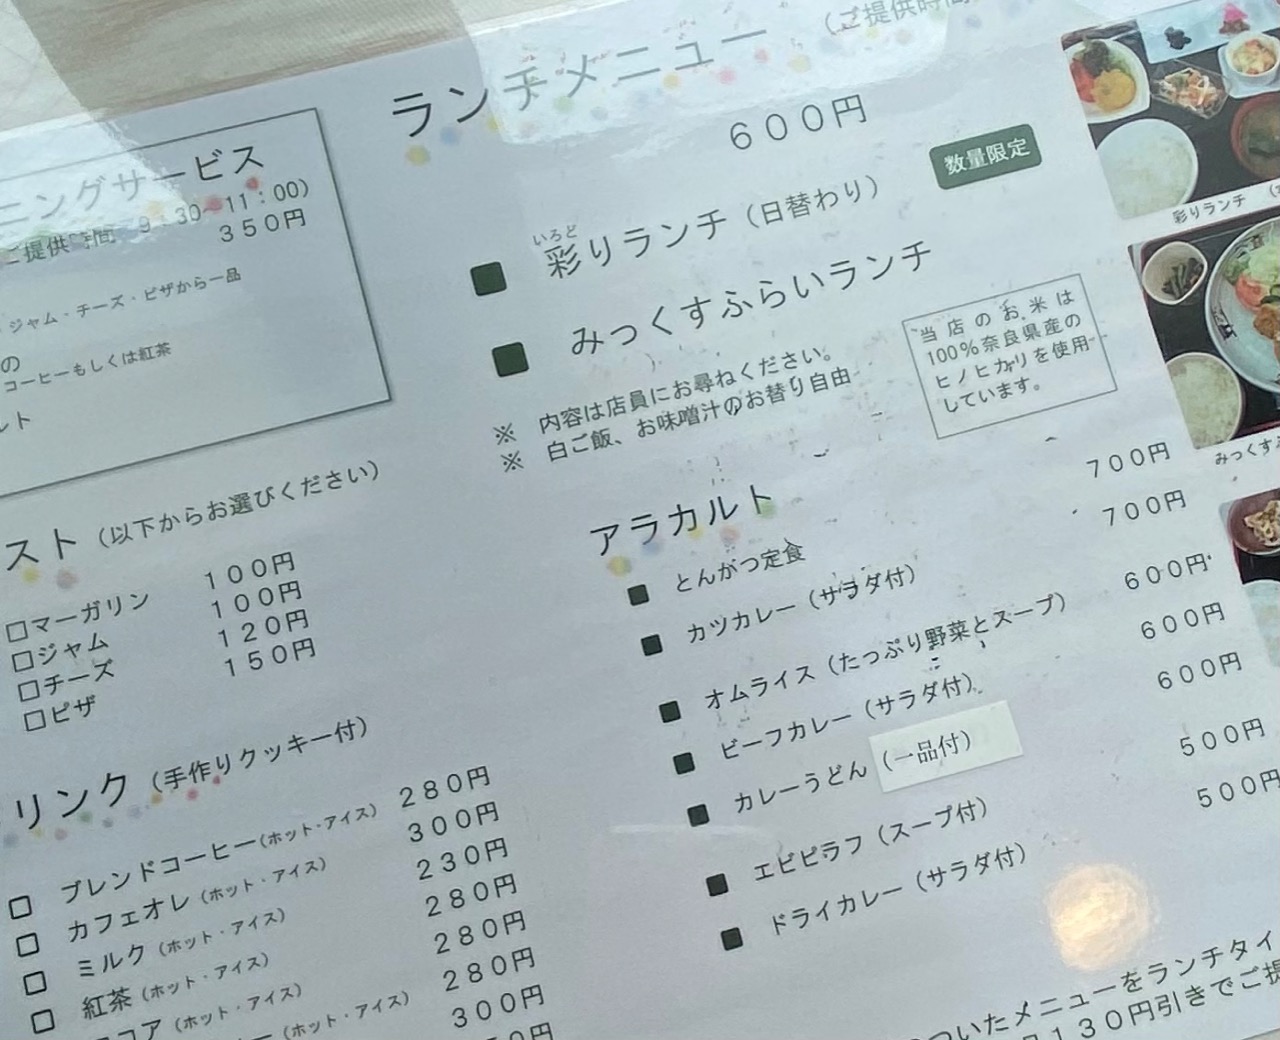 ニングサービス
ご提供時間 9:30～11:00)
350円
ジャム・チーズ・ピザから一品
の
コーヒーもしくは紅茶
ルト
スト（以下からお選びください）
□マーガリン 100円
□ジャム 100円
□チーズ 120円
□ピザ 150円
リンク（手作りクッキー付）
□ ブレンドコーヒー(ホット・アイス) 280円
□ カフェオレ（ホット・アイス） 300円
□ ミルク（ホット・アイス） 230円
□ 紅茶（ホット・アイス） 280円
ココア（ホット・アイス） 280円
ー（ホット・アイス） 280円
300円
0円
ランチメニュー （ご提供時間
600円
数量限定
■ 彩りランチ（日替わり）
いろど
■ みっくすふらいランチ
※ 内容は店員にお尋ねください。
※ 白ご飯、お味噌汁のお替り自由
当店のお米は
100％奈良県産の
ヒノヒカリを使用
しています。
アラカルト
■ とんがつ定食 700円
■ カツカレー（サラダ付） 700円
■ オムライス（たっぷり野菜とスープ） 600円
■ ビーフカレー（サラダ付） 600円
■ カレーうどん（一品付） 600円
■ エビピラフ（スープ付） 500円
■ ドライカレー（サラダ付） 500円
ついたメニューをランチタイ
130円引きでご提
彩りランチ
みっくすふ